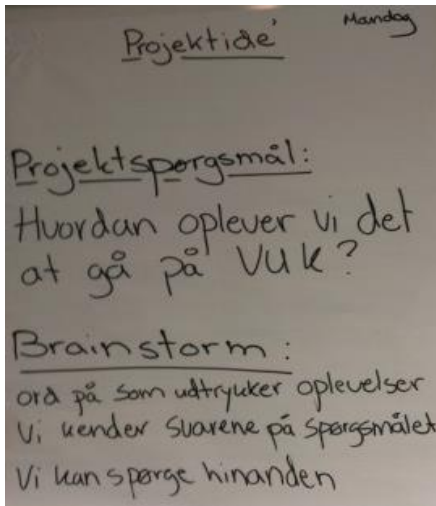 Mandag
Projektidé
Projektspørgsmål:
Hvordan oplever vi det
at gå på VUK?
Brainstorm:
ord på som udtrykker oplevelser
Vi kender svarene på spørgsmålet
Vi kan spørge hinanden